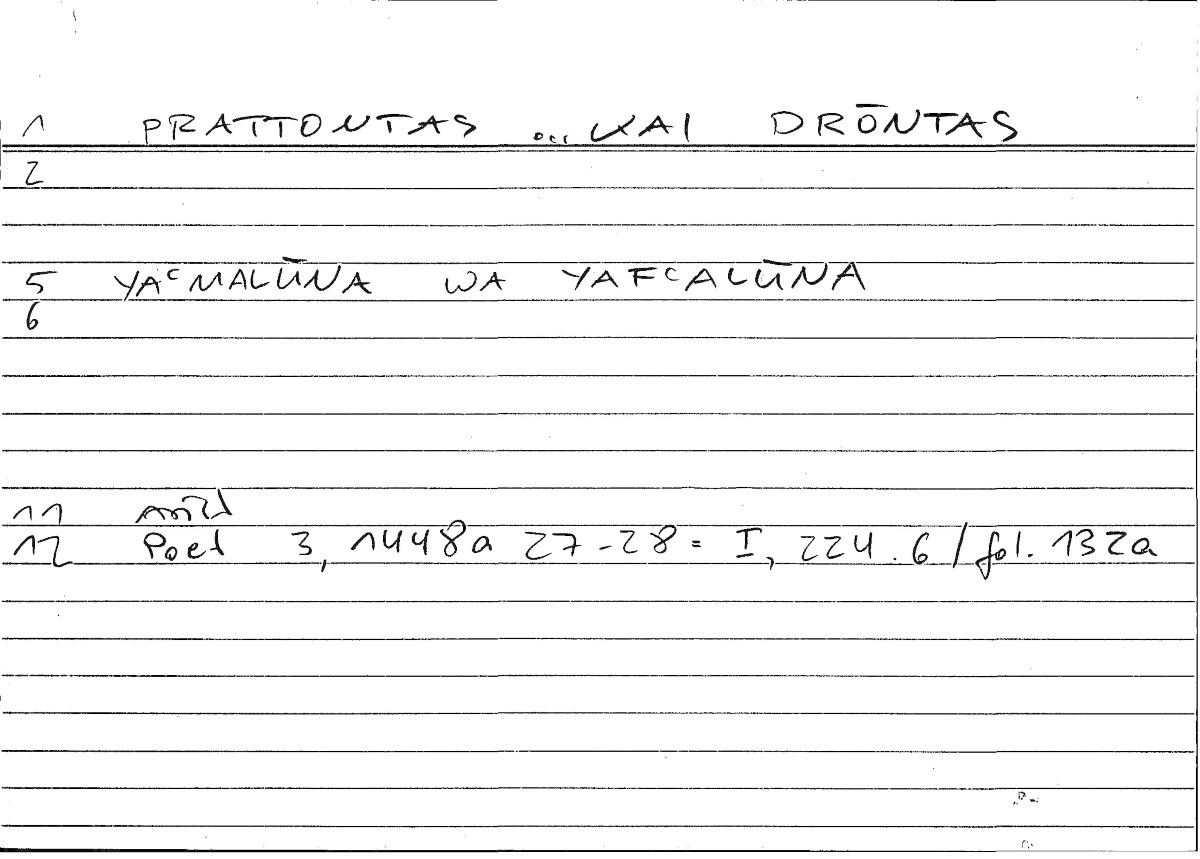 1 PRATTONTAS ... KAI DRŌNTAS
2
5 YAᶜMALŪNA WA YAFᶜALŪNA
6
11 Arist
12 Poet 3, 1448a 27-28 = I, 224.6 / fol. 132a